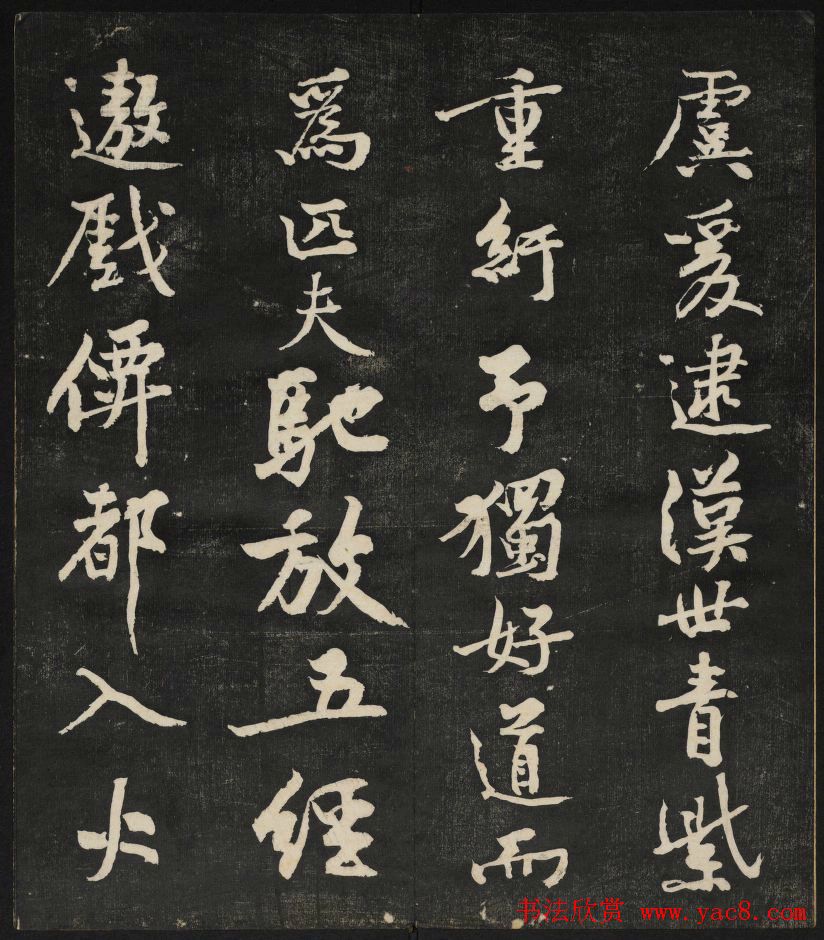 虞爰逮漢世青紫
重紆予獨好道而
爲匹夫馳放五經
遨戲僊都入火
书法欣赏 www.yac8.com